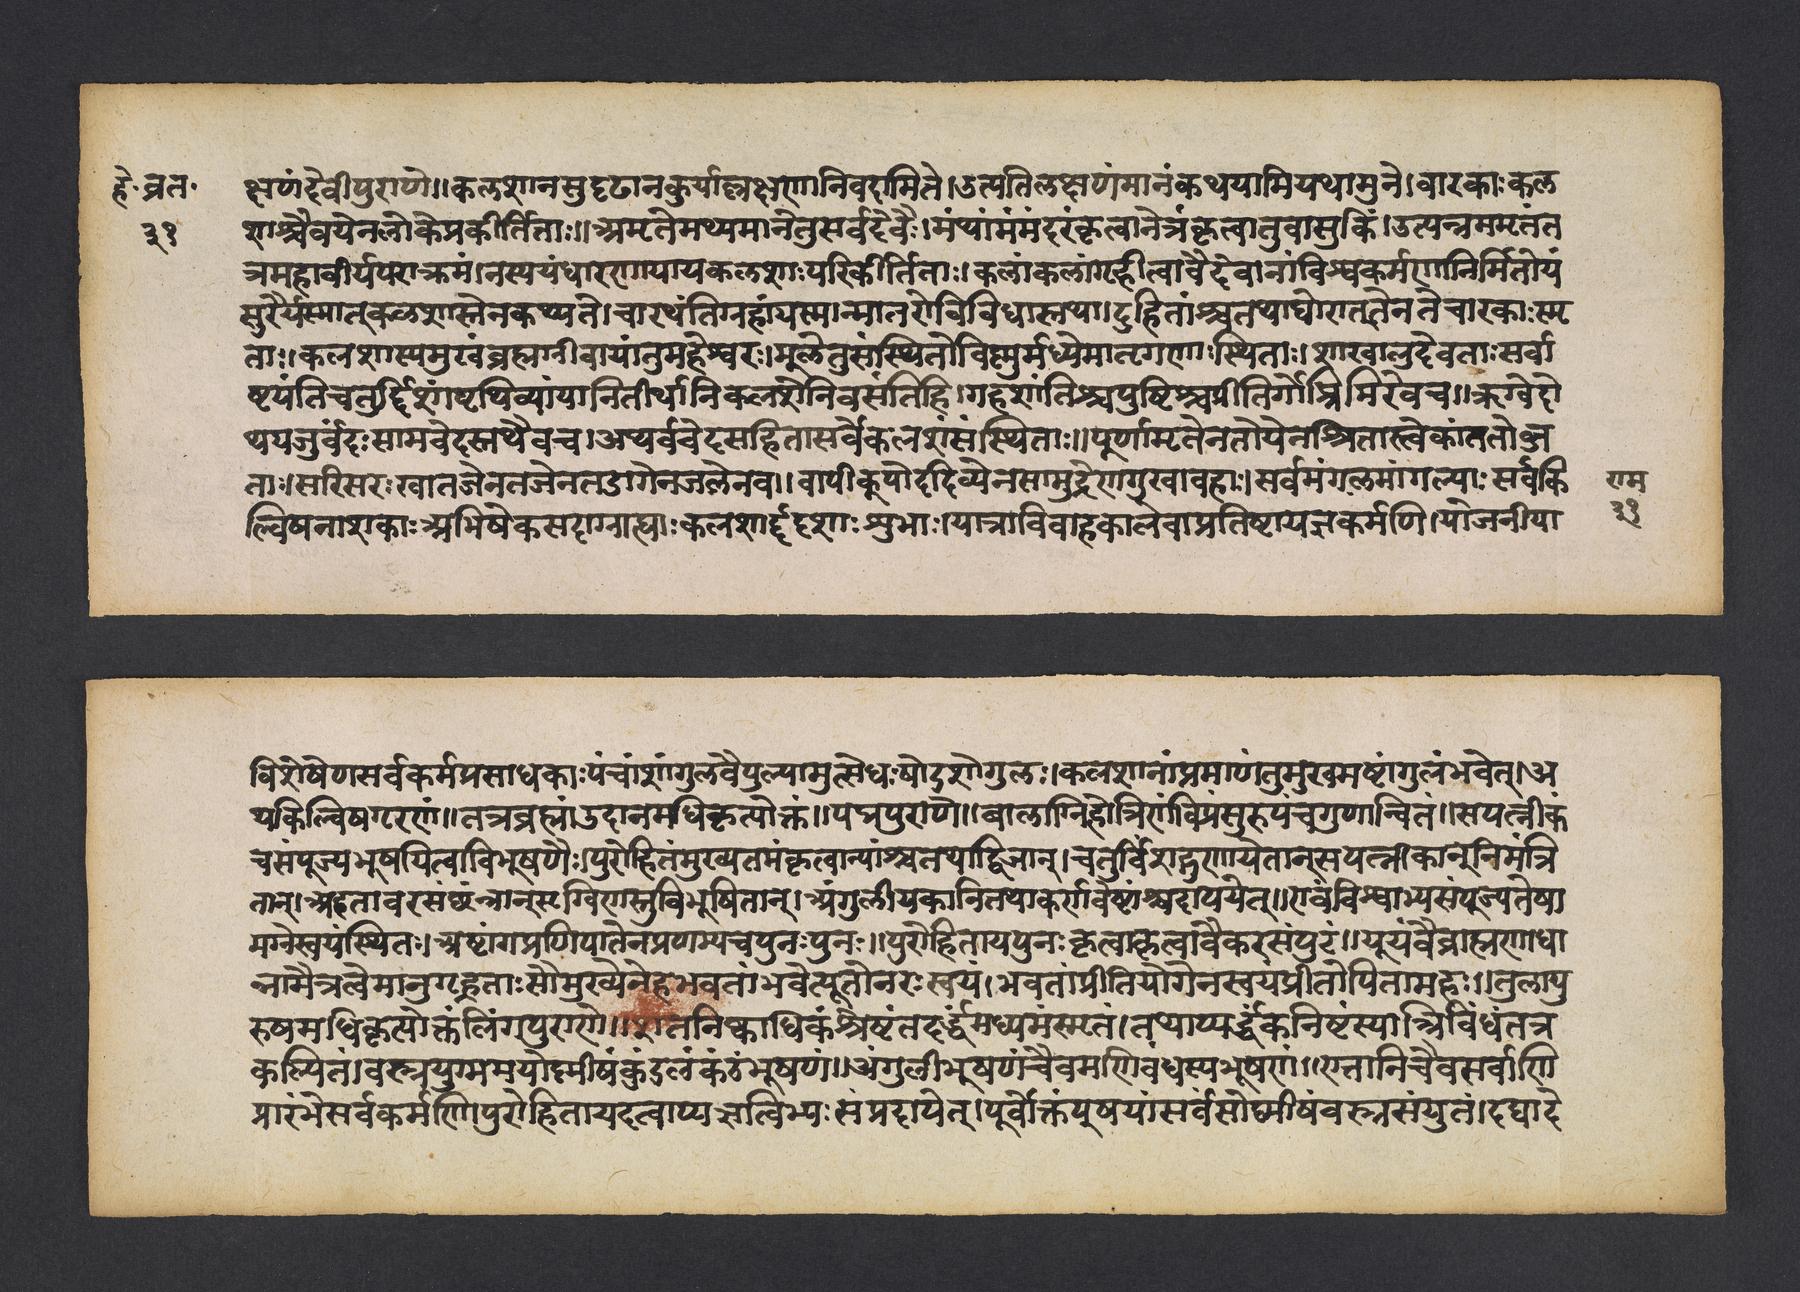 हे. व्रत.
३१
क्षणं देवीपुराणे॥ कलशान सुदृढान कुर्याल्लक्षणानि वदामि ते। उत्पतिलक्षणं मानं कथयामि यथा मुने। वारकाः कल
शाश्चैव येन लोके प्रकीर्तिताः॥ अमृते मथ्यमाने तु सर्वदेवैः। मंथां मंमंदरं कृत्वा नेत्रं कृत्वा तु वासुकिं। उत्पन्नममृतं त
त्र महावीर्यपराक्रमं। तस्ययं धारणायाय कलशाः परिकीर्तिताः। कलां कलां गृहीत्वा वै देवानां विश्वकर्मणा निर्मितोयं
सुरैर्यस्मात् कलशास्तेन कथ्यते। चारथंति ग्नहां यस्मान्मातरो विविधास्तथा। दुहितांश्च तथा घोरात् तेन ते चारकाः स्मृ
ताः। कलशास्य मुखं ब्रह्मा ग्नीवायां तु महेश्वरः। मुले तु संस्थितो विष्णुर्मध्ये मातृगणाः स्थिताः। शाखालु देवताः सर्वा
ष्टयंति चतुर्द्दिशं। पृथिव्यां यानि तीर्थानि कलशे निवसंति हि। गहशांतिश्च पुष्टिश्च प्रीतिर्गा प्तिमिरेव च॥ ऋग्वेदो
थ यजुर्वेदः सामवेदस्तथैव च। अथर्ववेदसहिता सर्वे कलशं संस्थिताः॥ पूर्णामृतेन तोयेन श्रितास्त्वेकांततो ञ
ताः। सरिसरः खातजेन तजेन तडागेन जलेन व॥ वापीकुपोद दिव्येन सामुद्रेण गुखावहाः। सर्वमंगलमांगल्याः सर्वकि
ल्विषनाशकाः अभिषेक सदा ग्नाह्याः कलशार्द्दृदृशाः शुभाः। यात्राविवाहकाले वा प्रतिष्टायज्ञकर्मणि। योजनीया
राम
३१
विशेषेण सर्वकर्मप्रसाधकाः पंचांशांगुलवैपुल्यामुत्सेधः षोडशोगुलः। कलशानां प्रमाणं तु मुखमष्टांगुलं भवेत्। अ
थ किल्विषगरणं॥ तत्र ब्रह्मांउदानमधिकृत्योक्तं॥ पद्मपुराणे॥ बालाग्निहोत्रिणं विप्रं सुरुपं च गुणान्वितं॥ सपत्नीकं
च संपूज्य भुषयित्वा विभुषणैः। पुरोहितं मुख्यतमं कृत्वान्यांश्च तथा द्विजान्। चतुर्विंशद्गुणोयेतान् सपत्नीकान् निमंत्रि
तान्। अहतावरसंछंन्नान् सग्विणस्तु विभुषितान्। अंगुलीयकानि तथा कर्णवेष्टांश्च दापयेत्॥ एवं विश्वाभ्य संपूज्य तेषा
मग्रे स्वयं स्थितः। अष्टांगप्रणिपातेन प्रणम्य च पुनः पुनः॥ पुरोहिताय पुनः कृत्वा कृत्वा वै करसंपुटं॥ यूयं वै ब्राह्मणा धा
त्रा मैत्रत्वेमानुगृह्नताः सोमुख्येनेह भवतां भवेत्पूतो नरः स्वयं। भवतां प्रीतियोगेन स्वयं प्रीतो पितामहः॥ तुलापु
रुषमधिकृत्योक्तं लिंगपुराणे॥ शतनिष्काधिकं श्रेष्टं तदर्द्धं मध्यमं स्मृतं। तथाप्यर्द्धं कनिष्टं स्यान्त्रिविधं तत्र
कल्पितं। वस्त्रयुग्ममयोष्णीषं कुंडलं कंठभुषणं॥ अंगुलीभुषणं चैव मणिवंधस्य भूषणं। एतानि चैव सर्वाणि
प्रारंभे सर्वकर्मणि। पुरोहिताय दत्वाप्य ऋत्विभ्यः संप्रदापेत्। पूर्वोक्तं पुषयां सर्वं सोष्णीषं वस्त्रसंयुतं। दद्यादे